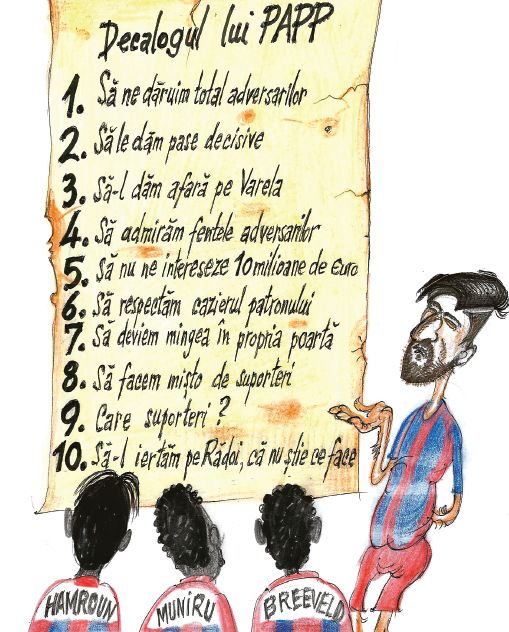 Decalogul lui PAPP
1. Să ne dăruim total adversarilor
2. Să le dăm pase decisive
3. Să-l dăm afară pe Varela
4. Să admirăm fentele adversarilor
5. Să nu ne intereseze 10 milioane de Euro
6. Să respectăm cazierul patronului
7. Să deviem mingea în propria poartă
8. Să facem mișto de suporteri
9. Care suporteri?
10. Să-l iertăm pe Rădoi, că nu știe ce face
HAMROUN
MUNIRU
BREEVELD